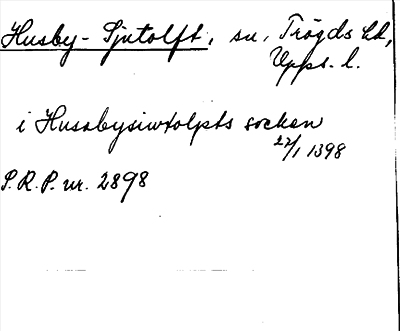 Husby-Sjutolft, sn, Trögds hd,
Upps. l.
i Husabysiwtolpts socken
22/1 1398
S.R.P. nr. 2898